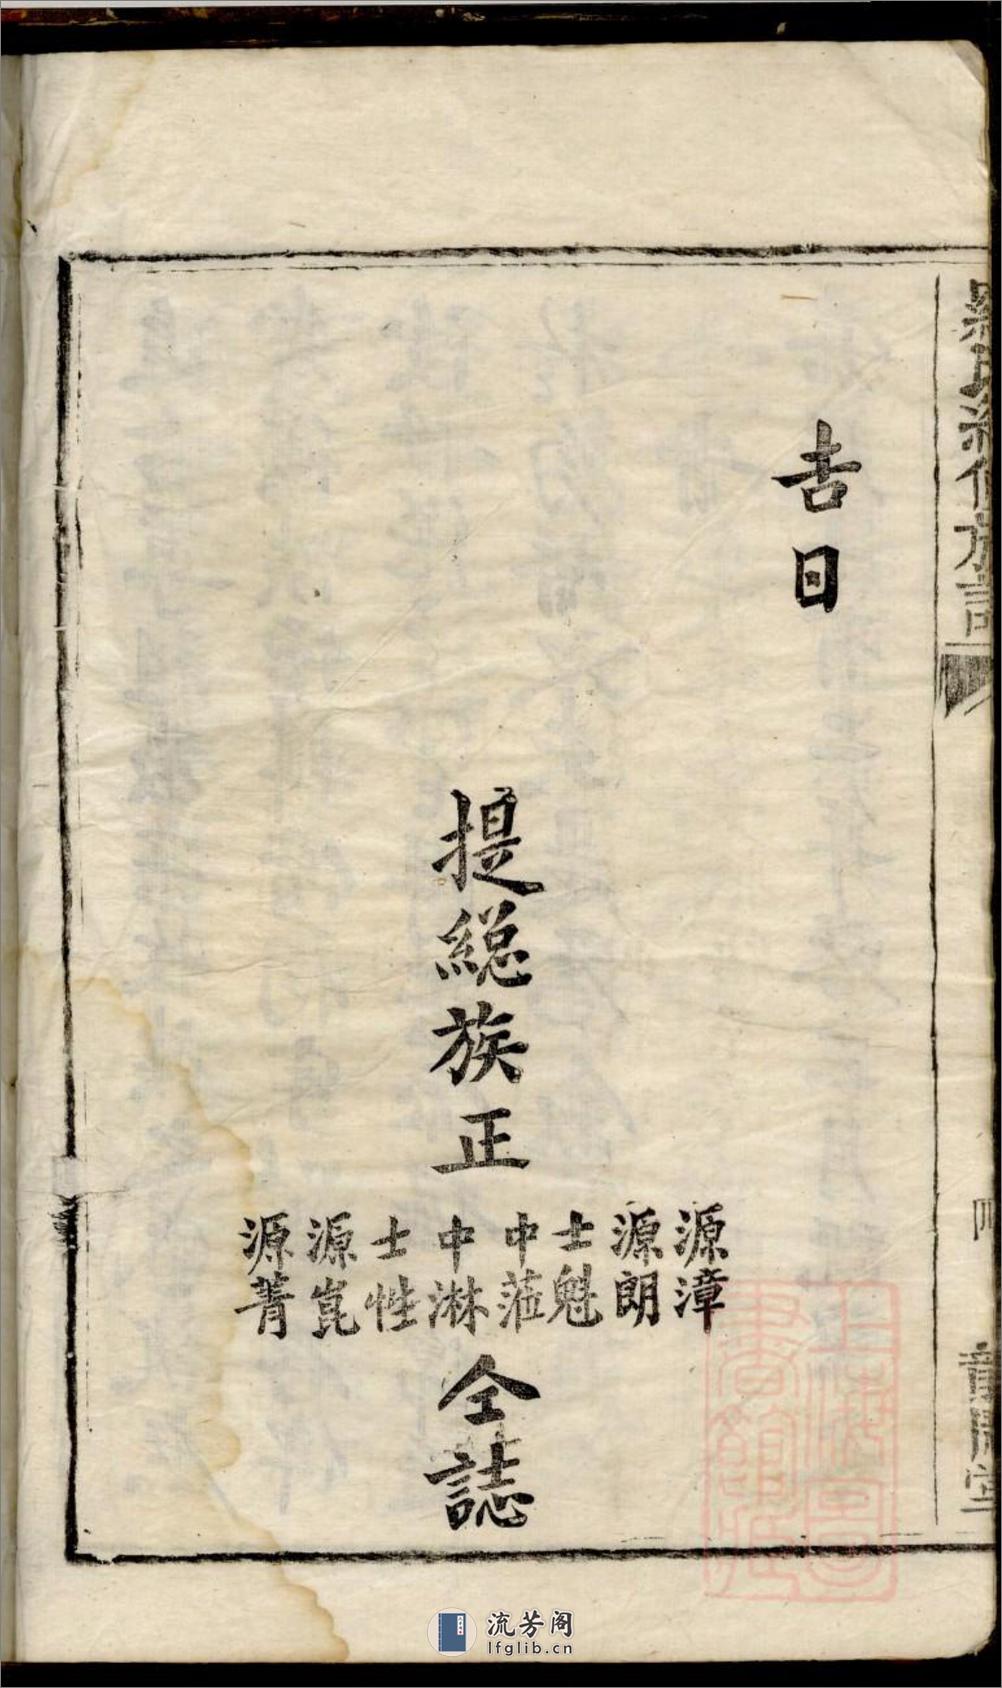 吉日
提緫族正
源漳
源朗
士魁
中蒞
中淋
士性
源崑
源菁
仝誌
上海圖書館藏
流芳阁
lfglib.cn